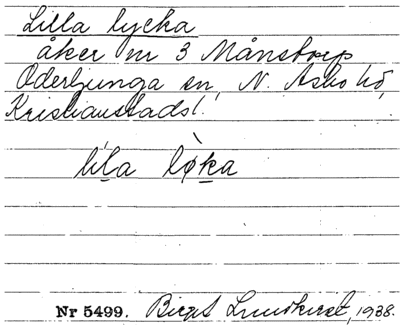 Lilla lycka
åker nr 3 Månstorp
Oderljunga sn, N. Åsbo hd,
Kristianstads l.
lila løka
Nr 5499. Birgit Lundkvist, 1938.